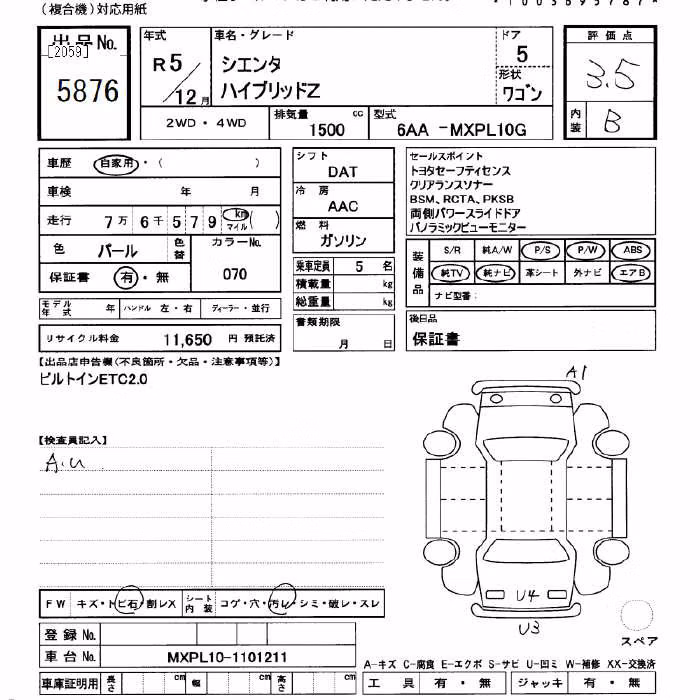 （複合機）対応用紙
出品No.
[2059]
5876
年式
R5/12月
車名・グレード
シエンタ
ハイブリッドZ
ドア
5
形状
ワゴン
評価点
3.5
内装
B
2WD・4WD
排気量
1500 cc
型式
6AA -MXPL10G
車歴 自家用・（ ）
車検 年 月
走行 7万6千579 km マイル ( )
色 パール 色替
カラーNo.
070
保証書 有・無
シフト
DAT
冷房
AAC
燃料
ガソリン
乗車定員 5 名
積載量 kg
総重量 kg
セールスポイント
トヨタセーフティセンス
クリアランスソナー
BSM、RCTA、PKSB
両側パワースライドドア
パノラミックビューモニター
装備品
S/R 純A/W P/S P/W ABS
純TV 純ナビ 革シート 外ナビ エアB
ナビ型番：
モデル年式 年 ハンドル 左・右 ディーラー・並行
リサイクル料金 11,650 円 預託済
書類期限
月 日
後日品
保証書
【出品店申告欄（不良箇所・欠品・注意事項等）】
ビルトインETC2.0
【検査員記入】
A.U
A1
U4
U3
スペア
FW キズ・トビ石・割レX
シート内装 コゲ・穴・汚レ・シミ・破レ・スレ
登録No.
車台No. MXPL10-1101211
車庫証明用 長さ cm 幅 cm 高さ cm
A-キズ C-腐食 E-エクボ S-サビ U-凹ミ W-補修 XX-交換済
工具 有・無 ジャッキ 有・無